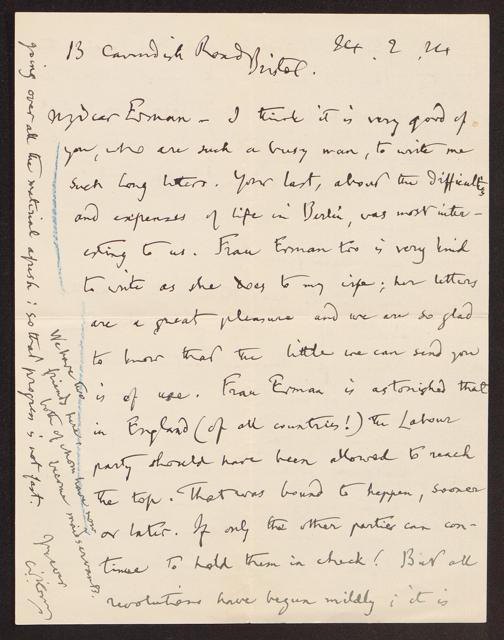 13 Cavendish Road
Bristol.
24 . 2 . 24
My dear Erman – I think it is very good of
you, who are such a busy man, to write me
such long letters. Your last, about the difficulties
and expenses of life in Berlin, was most inter-
esting to us. Frau Erman too is very kind
to write as she does to my wife; her letters
are a great pleasure and we are so glad
to know that the little we can send you
is of use. Frau Erman is astonished that
in England (of all countries!) the Labour
party should have been allowed to reach
the top. That was bound to happen, sooner
or later. If only the other parties can con-
tinue to hold them in check! But all
revolutions have begun mildly; it is
going over all the material afresh; so that progress is not fast.
We have two
friends here
both of whom have now
become maidservants.
Yours ever